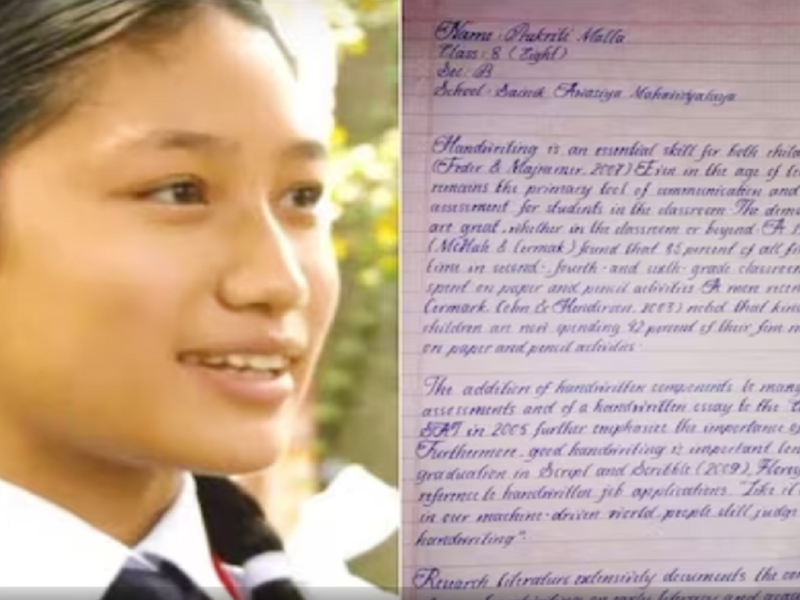 Name : Prakriti Malla
Class : 8 (Eight)
Sec : B
School : Sainik Awasiya Mahavidyalaya
Handwriting is an essential skill for both child
(Feder & Majnemer, 2007) Even in the age of te
remains the primary tool of communication and
assessment for students in the classroom. The dem
are great, whether in the classroom or beyond. A
(McHale & Cermak) found that 85 percent of all fi
time in second-, fourth-and sixth-grade classroom
spent on paper and pencil activities. A more recen
Cermark, Cohn & Henderson, 2003) noted that kind
children are now spending 42 percent of their fine m
on paper and pencil activities.
The addition of handwritten components to many
assessments and of a handwritten essay to the
SAT in 2005 further emphasize the importance of
Furthermore, good handwriting is important lon
graduation in Script and Scribble (2009), Florey
reference to handwritten job applications. "Like it
in our machine-driven world, people still judge
handwriting".
Research literature extensively documents the con